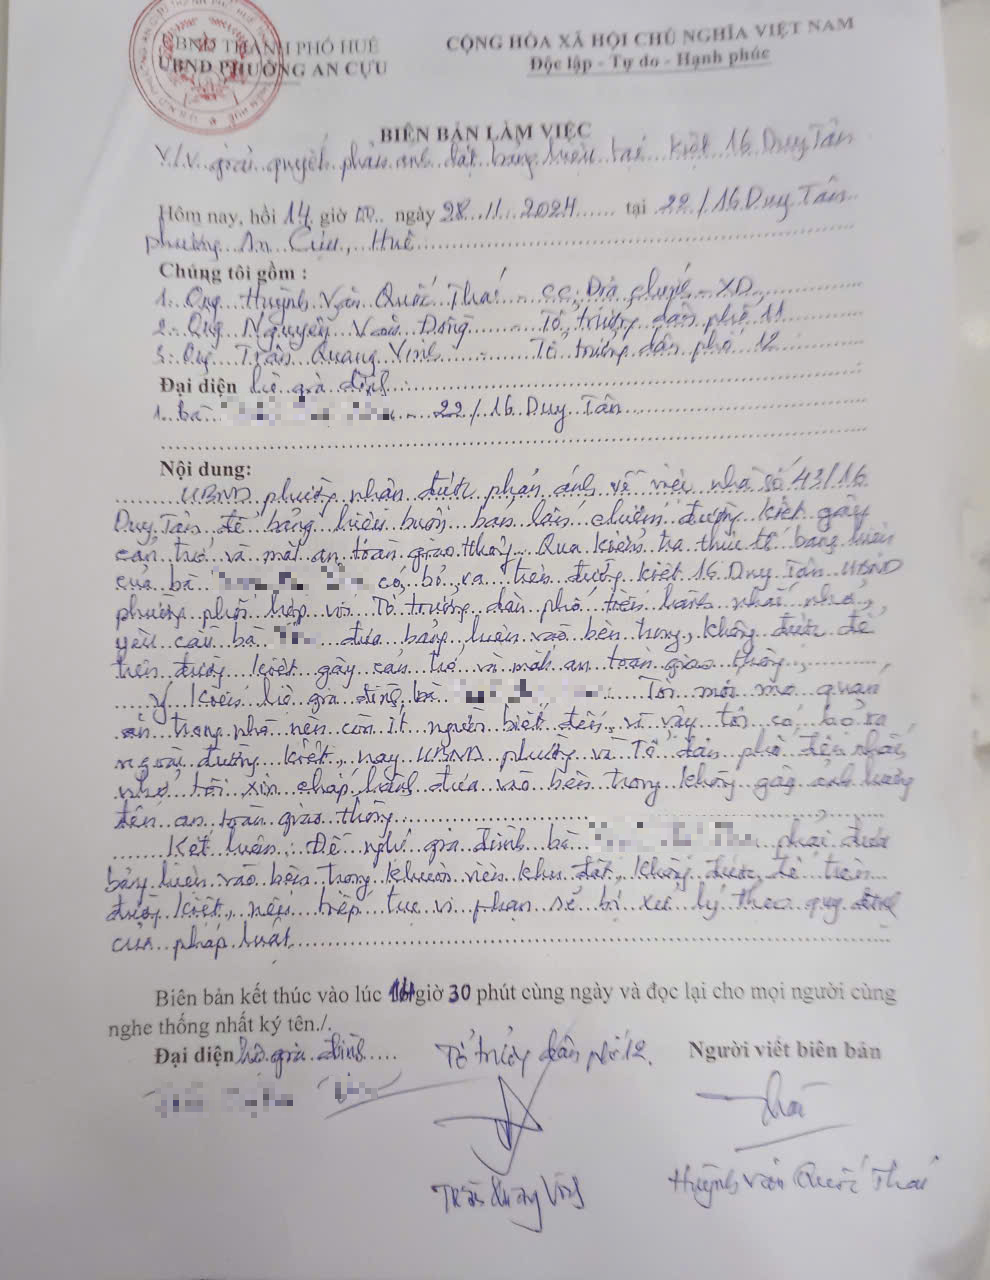 UBND THÀNH PHỐ HUẾ
UBND PHƯỜNG AN CỰU
CỘNG HÒA XÃ HỘI CHỦ NGHĨA VIỆT NAM
Độc lập - Tự do - Hạnh phúc
BIÊN BẢN LÀM VIỆC
V/v giải quyết phản ánh đặt bảng hiệu tại kiệt 16 Duy Tân
Hôm nay, hồi 14 giờ 00 ngày 28.11.2024 tại 22/16 Duy Tân
phường An Cựu, Huế
Chúng tôi gồm :
1. Ông Huỳnh Văn Quốc Thái - CC Địa chính - XD
2. Ông Nguyễn Văn Đông - Tổ trưởng dân phố 11
3. Ông Trần Quang Vinh - Tổ trưởng dân phố 12
Đại diện hộ gia đình :
1. bà - 22/16 Duy Tân
Nội dung:
UBND phường nhận được phản ánh về việc nhà số 43/16
Duy Tân để bảng hiệu buôn bán lấn chiếm đường kiệt gây
cản trở và mất an toàn giao thông. Qua kiểm tra thực tế bảng hiệu
của bà có bỏ ra trên đường kiệt 16 Duy Tân. UBND
phường phối hợp với Tổ trưởng dân phố tiến hành nhắc nhở,
yêu cầu bà đưa bảng hiệu vào bên trong, không được để
trên đường kiệt gây cản trở và mất an toàn giao thông.
Ý kiến hộ gia đình bà : Tôi mới mở quán
ăn trong nhà nên còn ít người biết đến, vì vậy tôi có bỏ ra
ngoài đường kiệt, nay UBND phường và Tổ dân phố đến nhắc
nhở tôi xin chấp hành đưa vào bên trong không gây ảnh hưởng
đến an toàn giao thông
Kết luận: Đề nghị gia đình bà phải đưa
bảng hiệu vào bên trong khuôn viên khu đất, không được để trên
đường kiệt, nếu tiếp tục vi phạm sẽ bị xử lý theo quy định
của pháp luật
Biên bản kết thúc vào lúc 14 giờ 30 phút cùng ngày và đọc lại cho mọi người cùng
nghe thống nhất ký tên./.
Đại diện hộ gia đình
Tổ trưởng dân phố 12.
Người viết biên bản
Thái
Trần Quang Vinh
Huỳnh Văn Quốc Thái